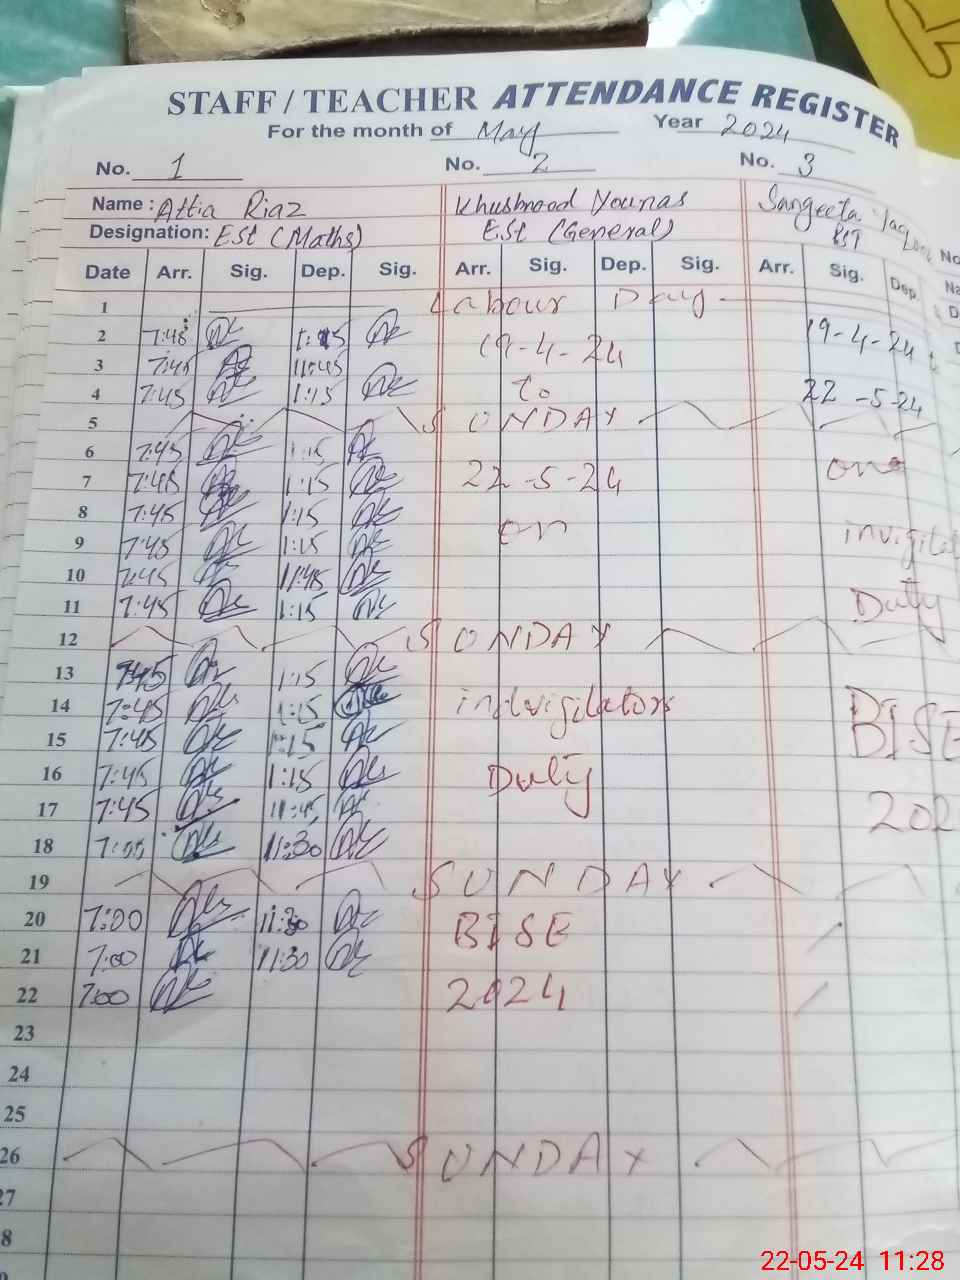 STAFF / TEACHER ATTENDANCE REGISTER
For the month of May Year 2024
No. 1 No. 2 No. 3
Name : Attia Riaz Khushnood Younas Sangeeta
Designation: Est (Maths) Est (General) PST
Date Arr. Sig. Dep. Sig. Arr. Sig. Dep. Sig. Arr. Sig. Dep.
1 Labour Day
2 7:45 1:15 19-4-24 19-4-24
3 7:45 11:45
4 7:45 1:15 to 22-5-24
5 SUNDAY
6 7:45 1:15
7 7:45 1:15 22-5-24 on
8 7:45 1:15
9 7:45 1:15 on
10 7:45 11:45
11 7:45 1:15 Duty
12 SUNDAY
13 7:45 1:15
14 7:45 1:15
15 7:45 1:15 BISE
16 7:45 1:15 Duty
17 7:45 11:45
18 7:00 11:30
19 SUNDAY
20 7:00 11:30 BISE
21 7:00 11:30
22 7:00 2024
23
24
25
26 SUNDAY
27
8
22-05-24 11:28